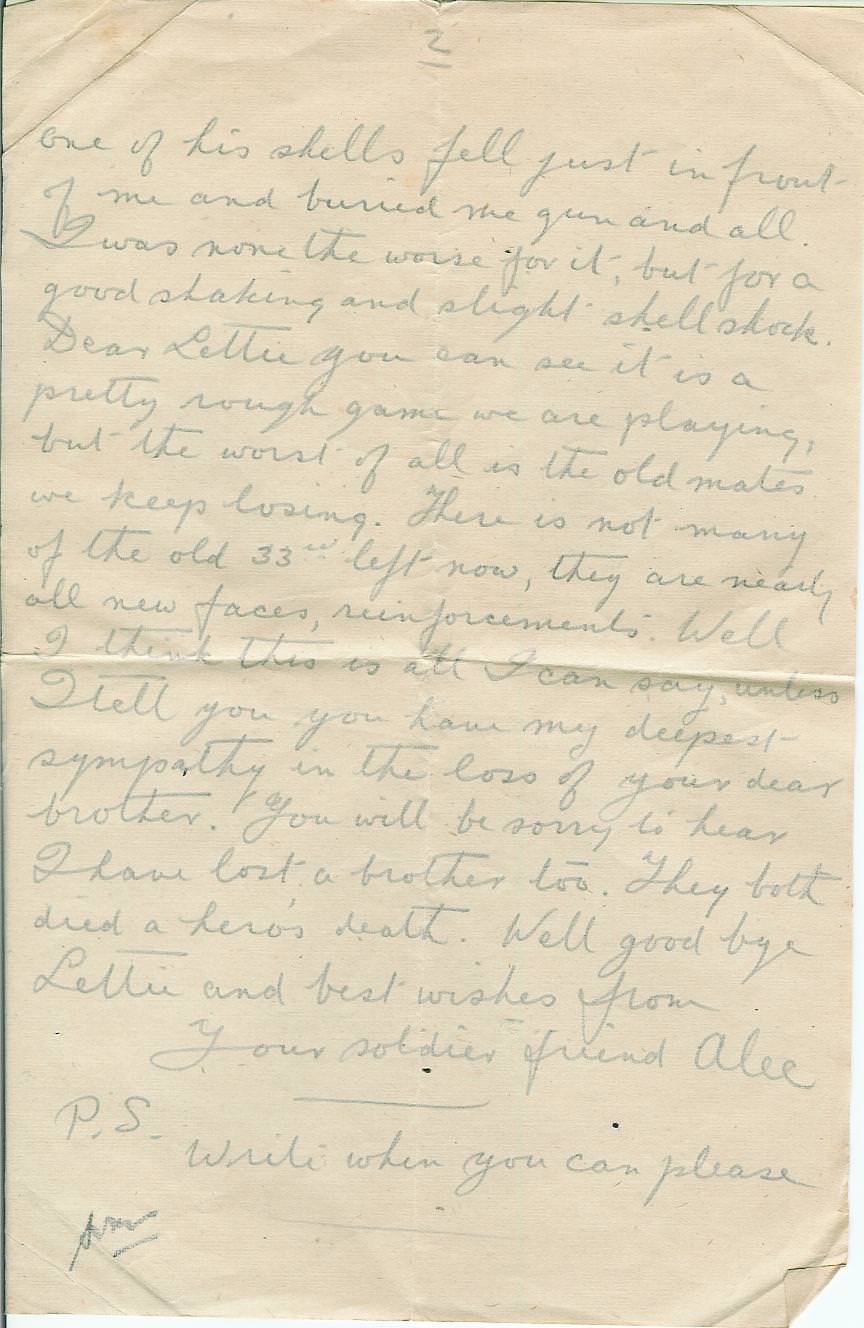 2
one of his shells fell just in front
of me and buried me gun and all.
I was none the worse for it, but for a
good shaking and slight shell shock.
Dear Lettie you can see it is a
pretty rough game we are playing,
but the worst of all is the old mates
we keep losing. There is not many
of the old 33rd left now, they are nearly
all new faces, reinforcements. Well
I think this is all I can say, unless
I tell you you have my deepest
sympathy in the loss of your dear
brother. You will be sorry to hear
I have lost a brother too. They both
died a hero's death. Well good bye
Lettie and best wishes from
Your soldier friend Alec
P.S.
Write when you can please